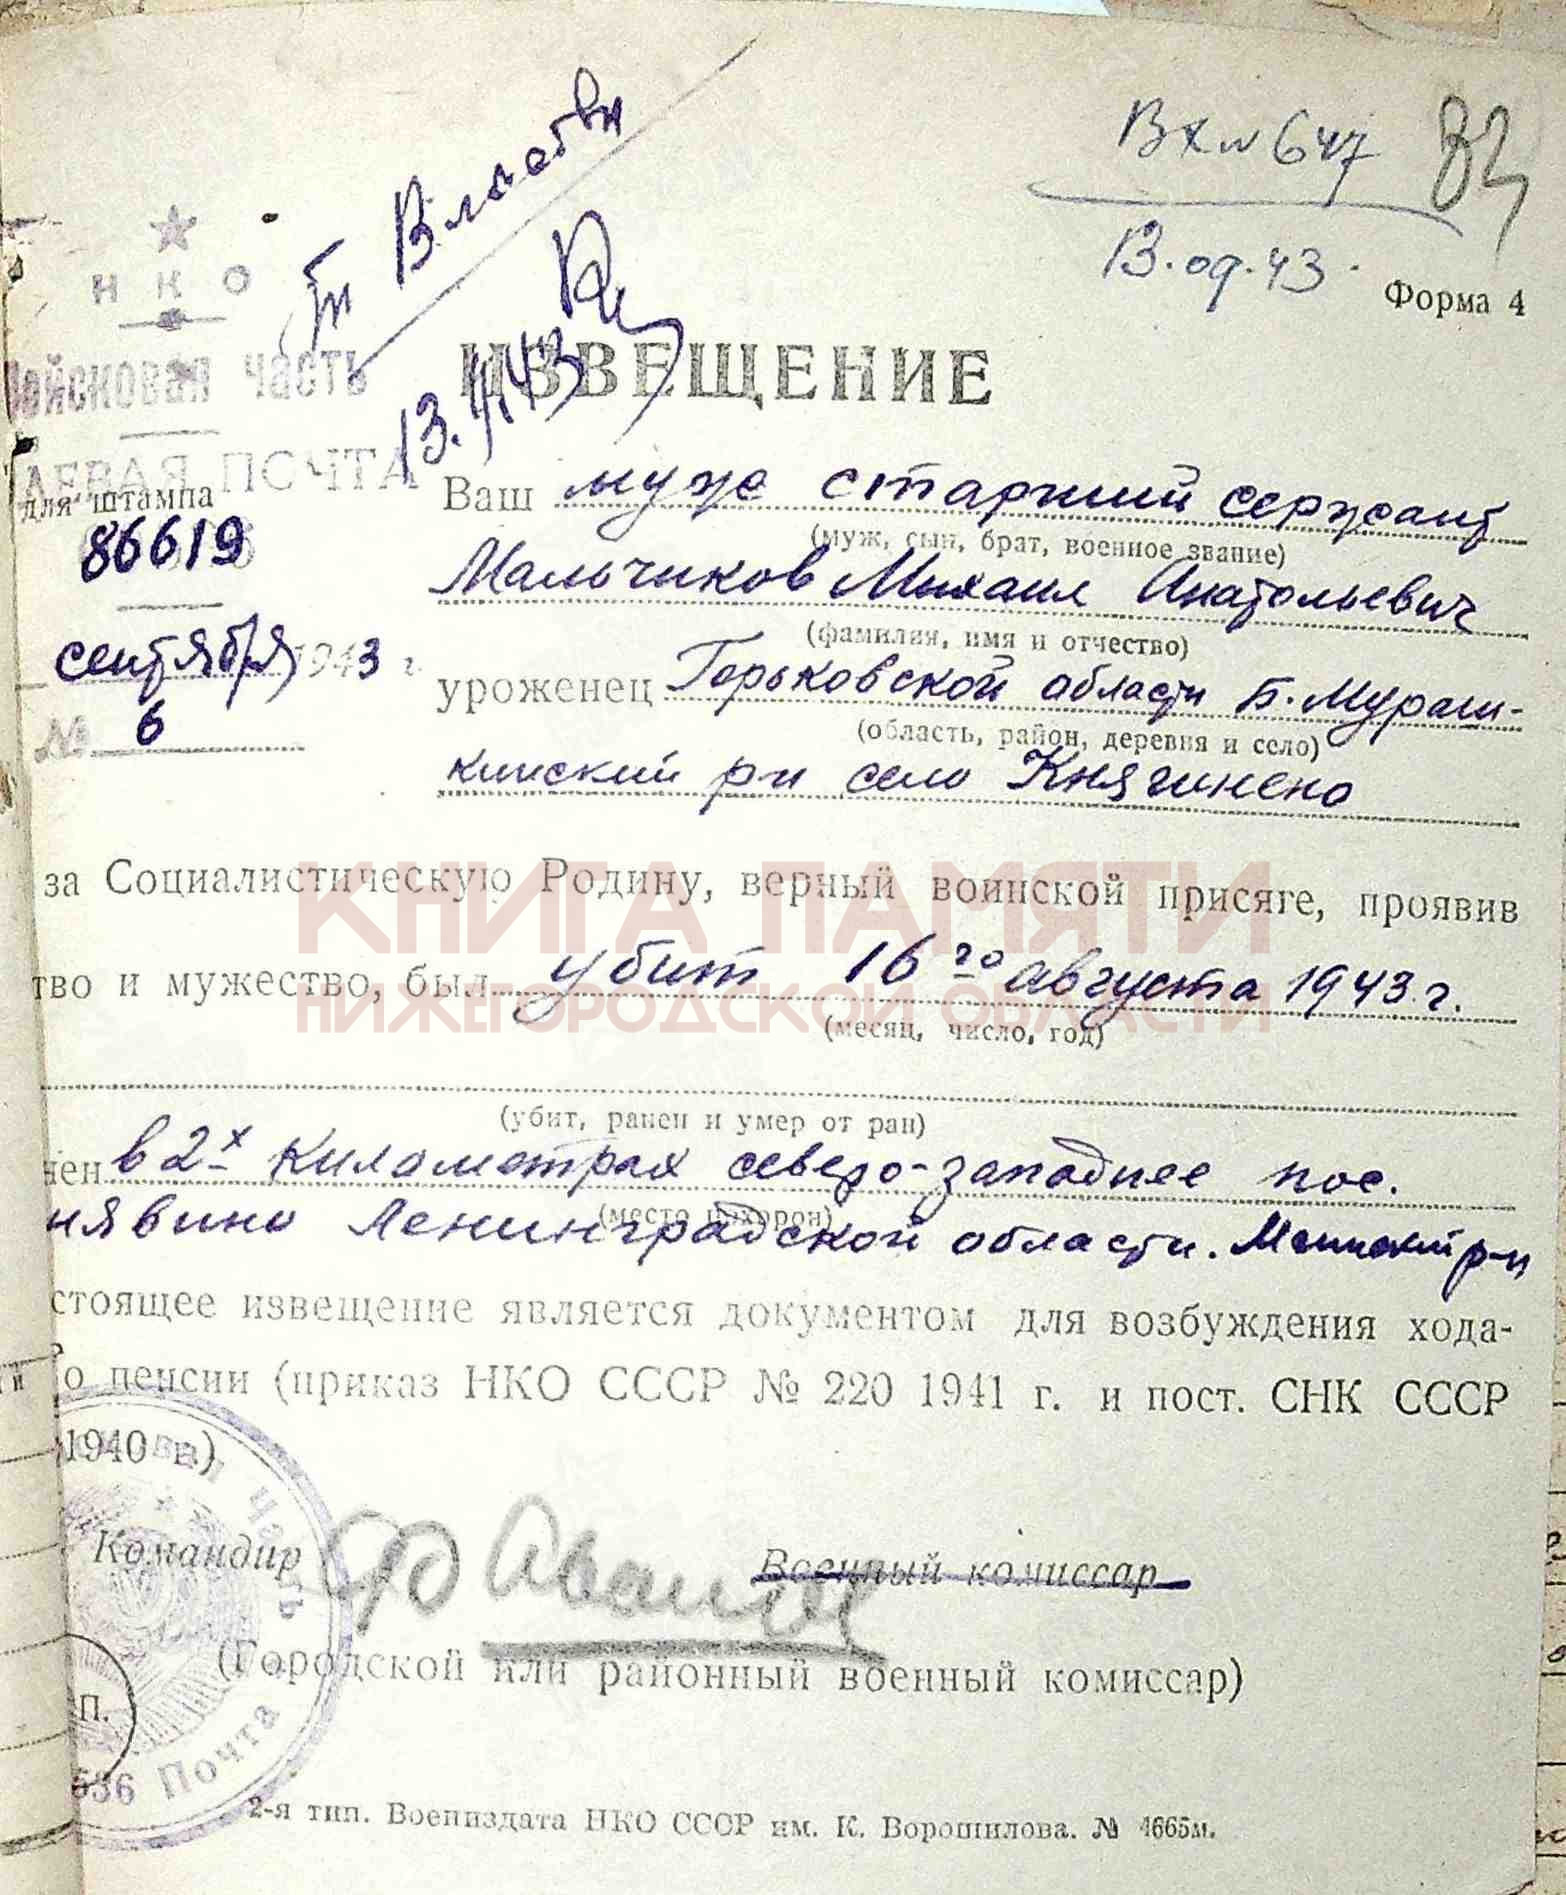 Вх № 647
13.09.43
Форма 4
НКО
Войсковая часть
ЛЕВАЯ ПОЧТА
для штампа
86619
сентября 1943 г.
№ 6
13.
ИЗВЕЩЕНИЕ
Ваш муж старший сержант
(муж, сын, брат, военное звание)
Мальчиков Михаил Анатольевич
(фамилия, имя и отчество)
уроженец Горьковской области Б. Мураш-
(область, район, деревня и село)
кинский р-н село Княгинено
за Социалистическую Родину, верный воинской присяге, проявив
КНИГА ПАМЯТИ
тво и мужество, был убит 16го августа 1943 г.
НИЖЕГОРОДСКОЙ ОБЛАСТИ
(месяц, число, год)
(убит, ранен и умер от ран)
нен в 2х километрах северо-западнее пос.
(место похорон)
нявино Ленинградской области. Мгинский р-н
стоящее извещение является документом для возбуждения хода-
о пенсии (приказ НКО СССР № 220 1941 г. и пост. СНК СССР
1940 г.)
Командир
Военный комиссар
(Городской или районный военный комиссар)
П.
часть
636 Почта
2-я тип. Воениздата НКО СССР им. К. Ворошилова. № 4665м.